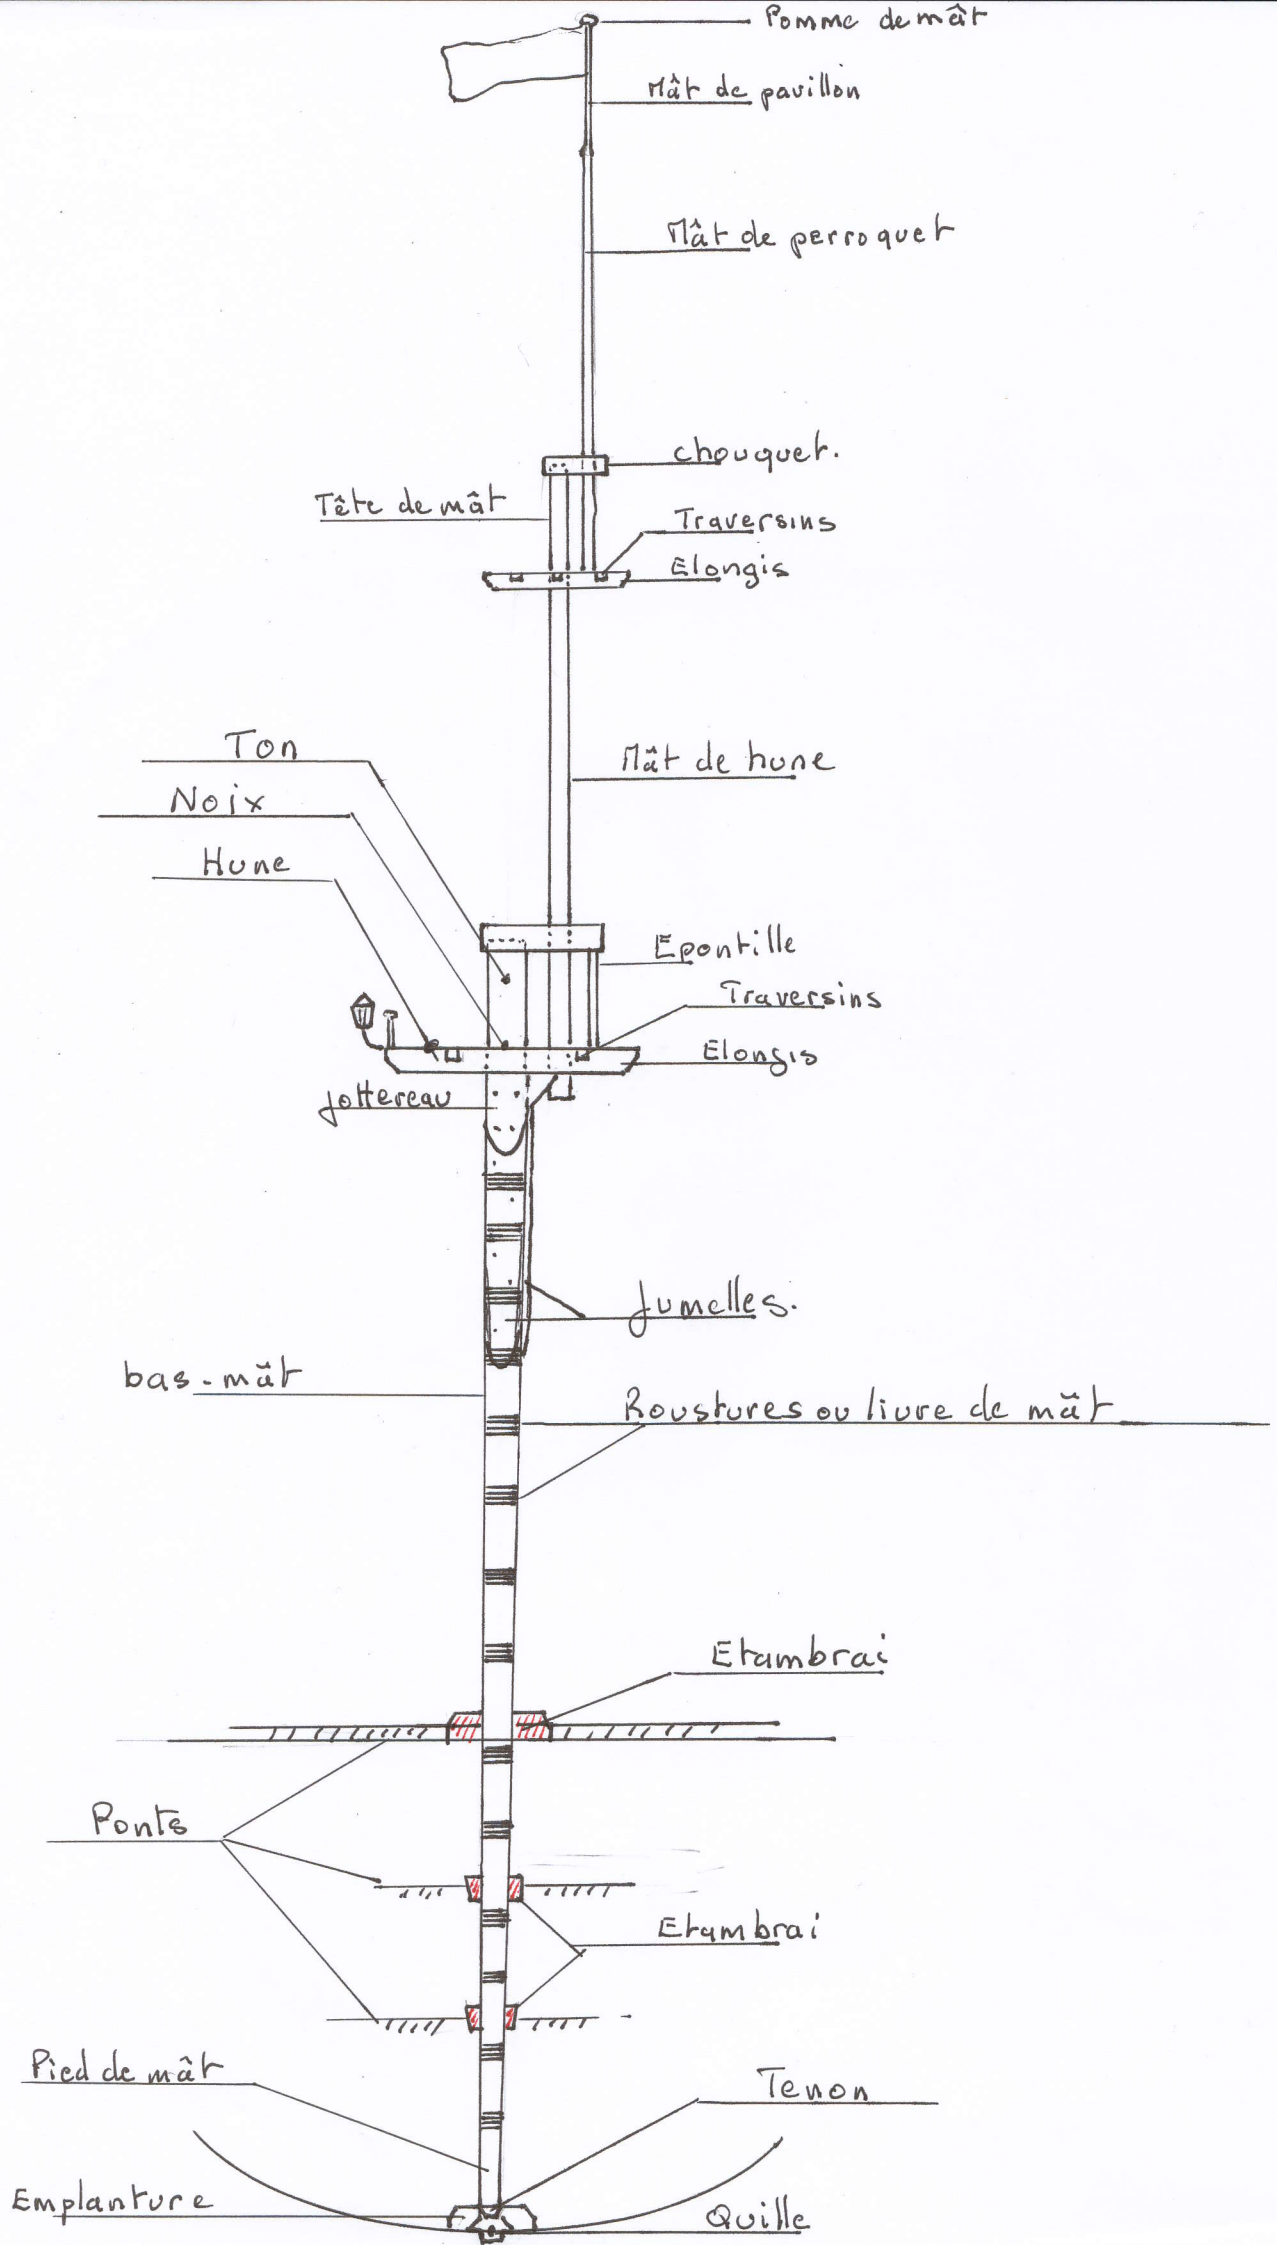 Pomme de mât
Mât de pavillon
Mât de perroquet
chouquet.
Tête de mât
Traversins
Elongis
Ton
Mât de hune
Noix
Hune
Epontille
Traversins
Elongis
jottereau
Jumelles.
bas-mât
Roustures ou liure de mât
Etambrai
Ponts
Etambrai
Pied de mât
Tenon
Emplanture
Quille